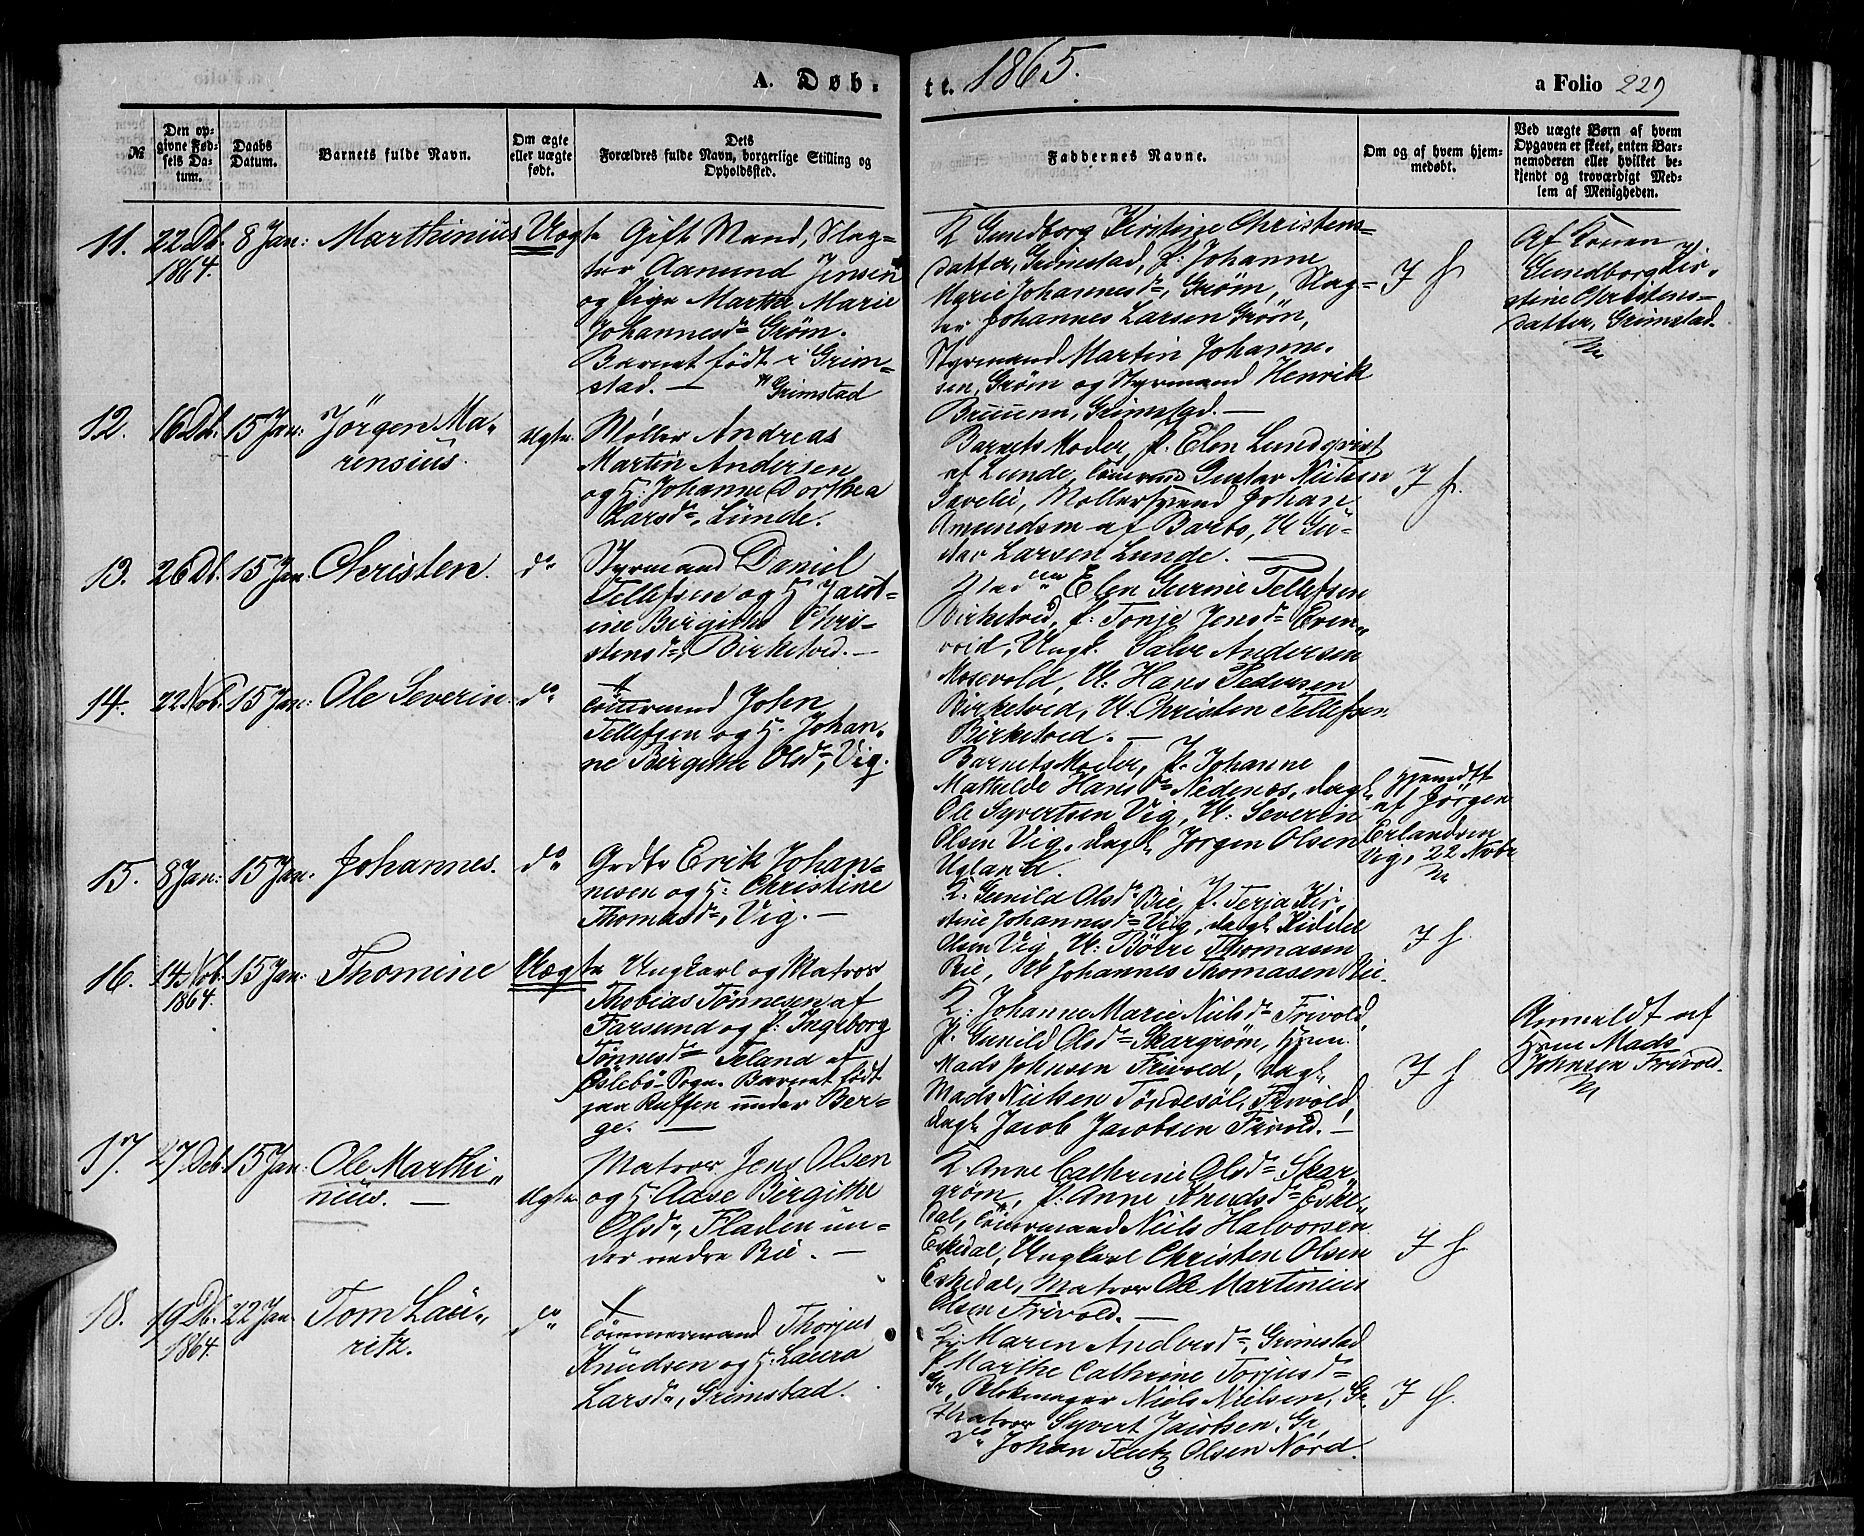 A. Døb-
te. 1865.
a Folio 229
№
Den op-
givne Fød-
sels Da-
tum.
Daabs
Datum.
Barnets fulde Navn.
Om ægte
eller uægte
født.
Dets
Forældres fulde Navn, borgerlige Stilling og
Opholdssted.
Faddernes Navne.
Om og af hvem hjem-
medøbt.
Ved uægte Børn af hvem
Opgaven er skeet, enten Bar-
nemoderen eller hvilket be-
kjendt og troværdigt Med-
lem af Menigheden.
11. 22 Db. 8 Jan: Marthinius Uægte Gift Mand, Slag-
1864.
ter Aamund Jensen
og Pige Marthe Marie
Johannesdr Grøm.
Barnet født i Grim-
stad. — Grimstad
K Gundborg Kirstine Christens-
datter, Grimstad, P: Johanne
Marie Johannesdr, Grøm, Slag-
ter Johannes Larsen Grøm,
Styrmand Martin Johanne-
sen, Grøm og Styrmand Henrik
Bruun, Grimstad. —
I H.
Af Konen
Gundborg Kir-
stine Christens-
datter, Grimstad.
12. 16 Db. 15 Jan: Jørgen Ma-
rensius.
Ægte
Møller Andreas
Martin Andersen
og H: Johanne Dorthea
Larsdr, Lunde.
Barnets Moder, P. Elen Lundqvist
af Lunde, Tømrmd Gustav Nielsen
Møllersvend Johan
Amundsen af Barbo, U Gu-
stav Larsen Lunde. —
I H.
13. 26 Db. 15 Jan. Christen. do
Styrmand Daniel
Tellefsen og H Jacob-
ine Birgithe Chri-
stensdr, Birketved. —
Elen Gurine Tellefsen
Birketved, P: Tonje Jensdr Even-
vold, Ungk. Salve Andersen
Mosevold, U: Hans Pedersen
Birketved, U. Christen Tellefsen
Birketved. —
14. 22 Nob. 15 Jan: Ole Severin. do
Tømrmand John
Tellefsen og H. Johan-
ne Birgithe Olsdr, Vig.
Barnets Moder, P. Johanne
Mathilde Hansdr Nedenes, dagl.
Ole Syvertsen Vig, U: Severin
Olsen Vig, dagl. Jørgen Olsen
Ugland.
Hjemdøbt
af Jørgen
Erlandsen
Vig, 22 Nobr
15. 8 Jan: 15 Jan. Johannes. do
Gjedte Erik Johan-
nesen og H: Christine
Thomasdr, Vig. —
K. Gunild Olsdr Bie, P. Terja Kir-
stine Johannesdr Vig, dagl Kiddel
Olsen Vig, U: Børre Thomasen
Bie, U Johannes Thomasen Bie.
I H.
16. 14 Nob. 15 Jan: Thomine Uægte Ungkarl og Matros
1864.
Thobias Tønnesen af
Farsund og P: Ingeborg
Tønnesdr Teland af
Oslebø Sogn. Barnet født
paa Roffen under Ber-
ge. —
K: Johanne Marie Nielsdr Frivold,
P. Gunild Olsdr Skargrøm, Hmm.
Mads Johnsen Frivold, dagl.
Mads Nielsen Tøndesøl, Frivold,
dagl. Jacob Jacobsen Frivold. —
I H.
Anmeldt af
Hmm Mads
Johnsen Frivold.
17. 27 Deb. 15 Jan: Ole Marthi-
nius. —
Ægte
Matros Jens Olsen
og H Aase Birgithe
Olsdr, Fladen un-
der nedre Bie. —
K. Anne Cathrine Olsdr Skar-
grøm, P. Anne Knudsdr Eske-
dal, Tømrmand Niels Halvorsen
Eskedal, Ungkarl Christen Olsen
Eskedal, Matros Ole Martinius
Olsen Frivold. —
I H.
18. 19 Db. 22 Jan. Tom Lau-
1864.
ritz.
do
Tømmermand Thorjus
Knudsen og H. Laura
Larsdr, Grimstad.
K. Maren Andersdr, Grimstad
P Marthe Cathrine Torjusdr
Gr, Blokmager Niels Nielsen, Gr
Matros Syvert Jacobsen, Gr
do Johan Olsen Nørd.
I H.